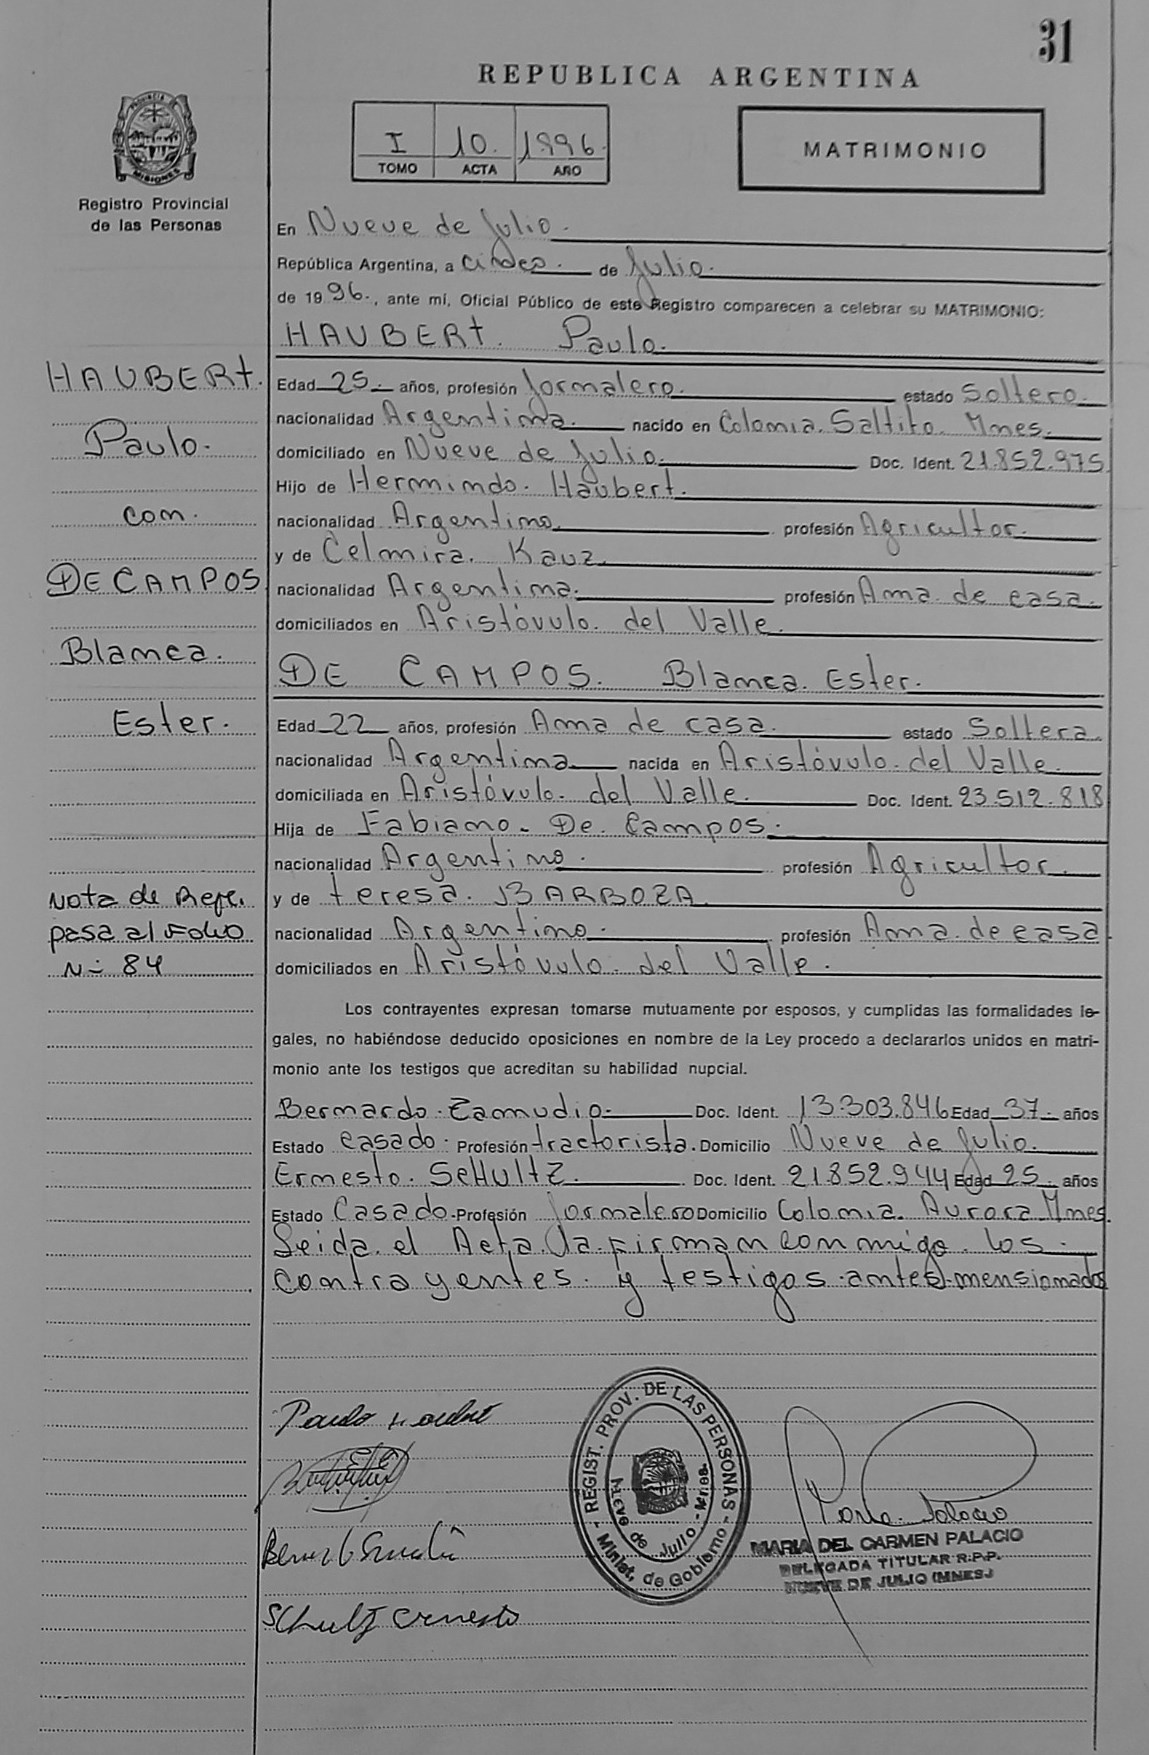 31
REPUBLICA ARGENTINA
PROVINCIA DE MISIONES
I 10. 1996.
TOMO ACTA AÑO
MATRIMONIO
Registro Provincial
de las Personas
En Nueve de Julio.
República Argentina, a cinco. de Julio.
de 1996., ante mi, Oficial Público de este Registro comparecen a celebrar su MATRIMONIO:
HAUBERt. Paulo.
Edad 25. años, profesión Jornalero. estado Soltero.
nacionalidad Argentina. nacido en Colonia. Saltito. Mnes.
domiciliado en Nueve de Julio. Doc. Ident. 21.852.975
Hijo de Hermindo. Haubert.
nacionalidad Argentino. profesión Agricultor.
y de Celmira. Kauz.
nacionalidad Argentina. profesión Ama. de casa.
domiciliados en Aristóvulo. del Valle.
DE CAMPOS. Blanca. Ester.
Edad 22 años, profesión Ama de casa. estado Soltera.
nacionalidad Argentina nacida en Aristóvulo. del Valle.
domiciliada en Aristóvulo. del Valle. Doc. Ident. 23.512.818
Hija de Fabiano. De. Campos.
nacionalidad Argentino. profesión Agricultor.
y de teresa. BARBOZA.
nacionalidad Argentino. profesión Ama. de casa
domiciliados en Aristóvulo. del Valle.
HAUBERt.
Paulo.
con.
DE CAMPOS
Blanca.
Ester.
Nota de Refe.
pasa al Folio
N- 84
Los contrayentes expresan tomarse mutuamente por esposos, y cumplidas las formalidades le-
gales, no habiéndose deducido oposiciones en nombre de la Ley procedo a declararlos unidos en matri-
monio ante los testigos que acreditan su habilidad nupcial.
Bernardo. Zamudio. Doc. Ident. 13.303.846 Edad 37. años
Estado Casado. Profesión tractorista. Domicilio Nueve de Julio.
Ernesto. SCHultZ. Doc. Ident. 21.852.944 Edad 25. años
Estado Casado. Profesión Jornalero Domicilio Colonia. Aurora Mnes.
Leida. el Acta. la. firman conmigo. los.
contrayentes. y testigos. antes. mensionados
Paulo Haubert
Schultz ernesto
- REGIST. PROV. DE LAS PERSONAS -
Minist. de Gobierno
Nueve de Julio - Mnes.
Maria Palacio
MARIA DEL CARMEN PALACIO
DELEGADA TITULAR R.P.P.
NUEVE DE JULIO (MNES.)